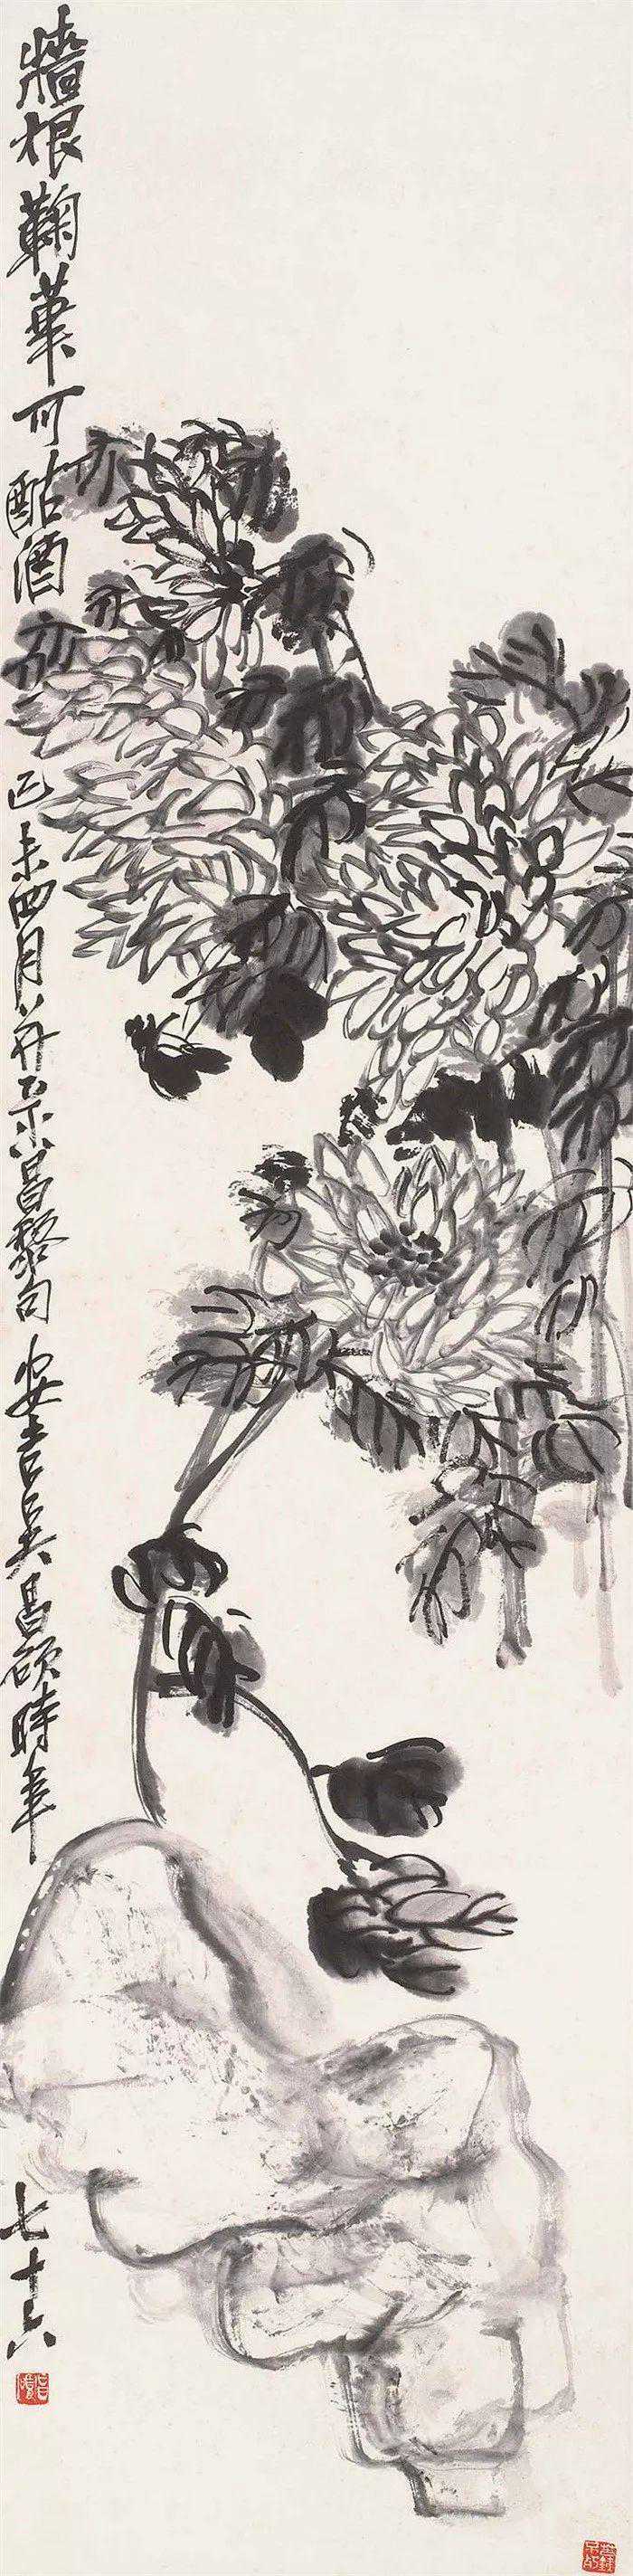 牆根鞠華可酤酒
己未四月杪并录昌黎句 安吉吳昌碩時年
七十六